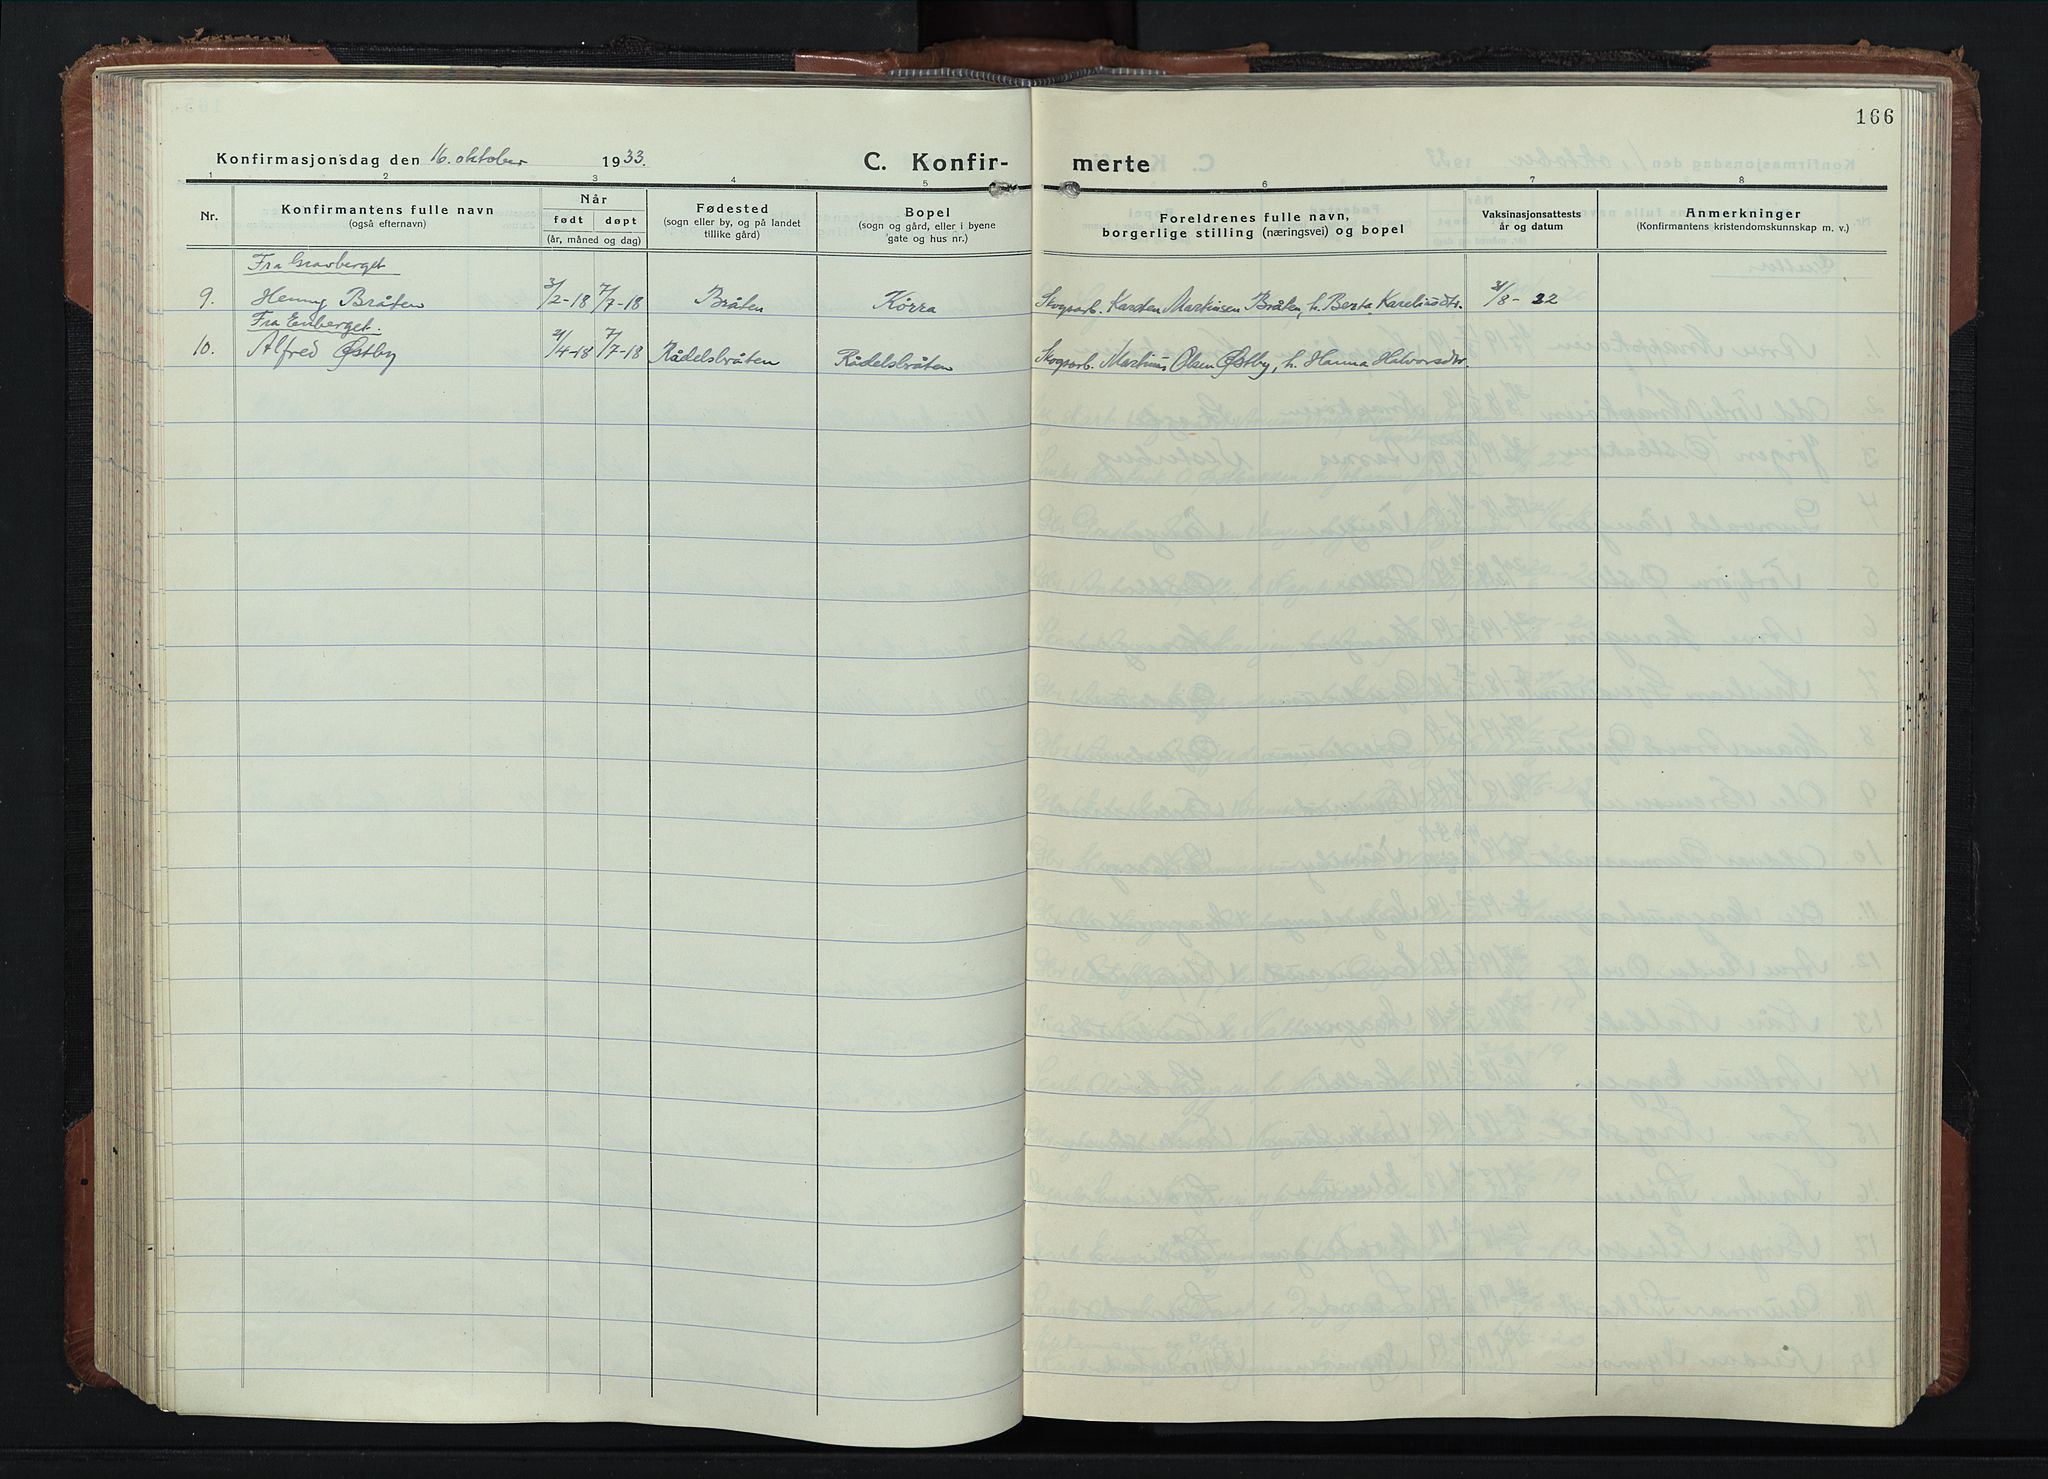 166
Konfirmasjonsdag den 16. oktober 1933.
C. Konfir- merte
1 2 3 4 5 6 7 8
Nr.
Konfirmantens fulle navn
(også efternavn)
Når
født døpt
(år, måned og dag)
Fødested
(sogn eller by, og på landet
tillike gård)
Bopel
(sogn og gård, eller i byene
gate og hus nr.)
Foreldrenes fulle navn,
borgerlige stilling (næringsvei) og bopel
Vaksinasjonsattests
år og datum
Anmerkninger
(Konfirmantens kristendomskunnskap m. v.)
Fra Gravberget
9. Henny Bråten 3/2-18 7/7-18 Bråten Kørra Skogsarb. Karsten Martinsen Bråten, h. Berta Kareliusdtr. 31/8-32
Fra Enberget.
10. Alfred Østby 21/4-18 7/7-18 Rådelsbråten Rådelsbråten Skogsarb. Martinus Olsen Østby, h. Hanna Halvorsdtr.